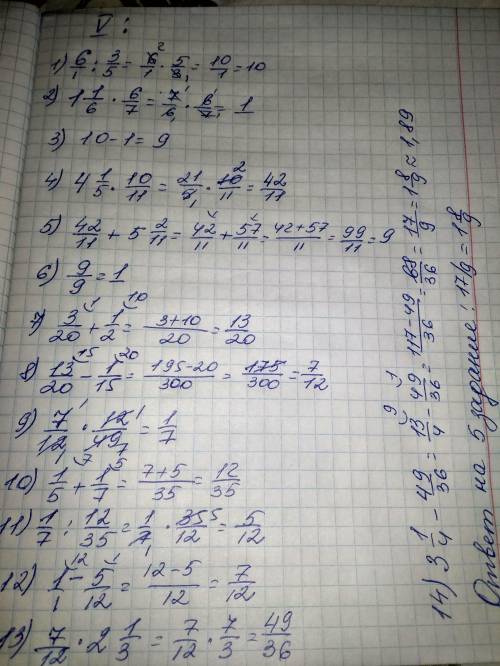 V:
1) 6/1 : 3/5 = 6/1 · 5/3 = 10/1 = 10
2) 1 1/6 · 6/7 = 7/6 · 6/7 = 1
3) 10-1=9
4) 4 1/5 · 10/11 = 21/5 · 10/11 = 42/11
5) 42/11 + 5 2/11 = 42/11 + 57/11 = 42+57/11 = 99/11 = 9
6) 9/9 = 1
7) 3/20 + 1/2 = 3+10/20 = 13/20
8) 13/20 - 1/15 = 195-20/300 = 175/300 = 7/12
9) 7/12 · 12/49 = 1/7
10) 1/5 + 1/7 = 7+5/35 = 12/35
11) 1/7 : 12/35 = 1/7 · 35/12 = 5/12
12) 1/1 - 5/12 = 12-5/12 = 7/12
13) 7/12 · 2 1/3 = 7/12 · 7/3 = 49/36
14) 3 1/4 - 49/36 = 13/4 - 49/36 = 117-49/36 = 68/36 = 17/9 = 1 8/9 ≈ 1,89
Ответ на 5 задание: 17/9 = 1 8/9